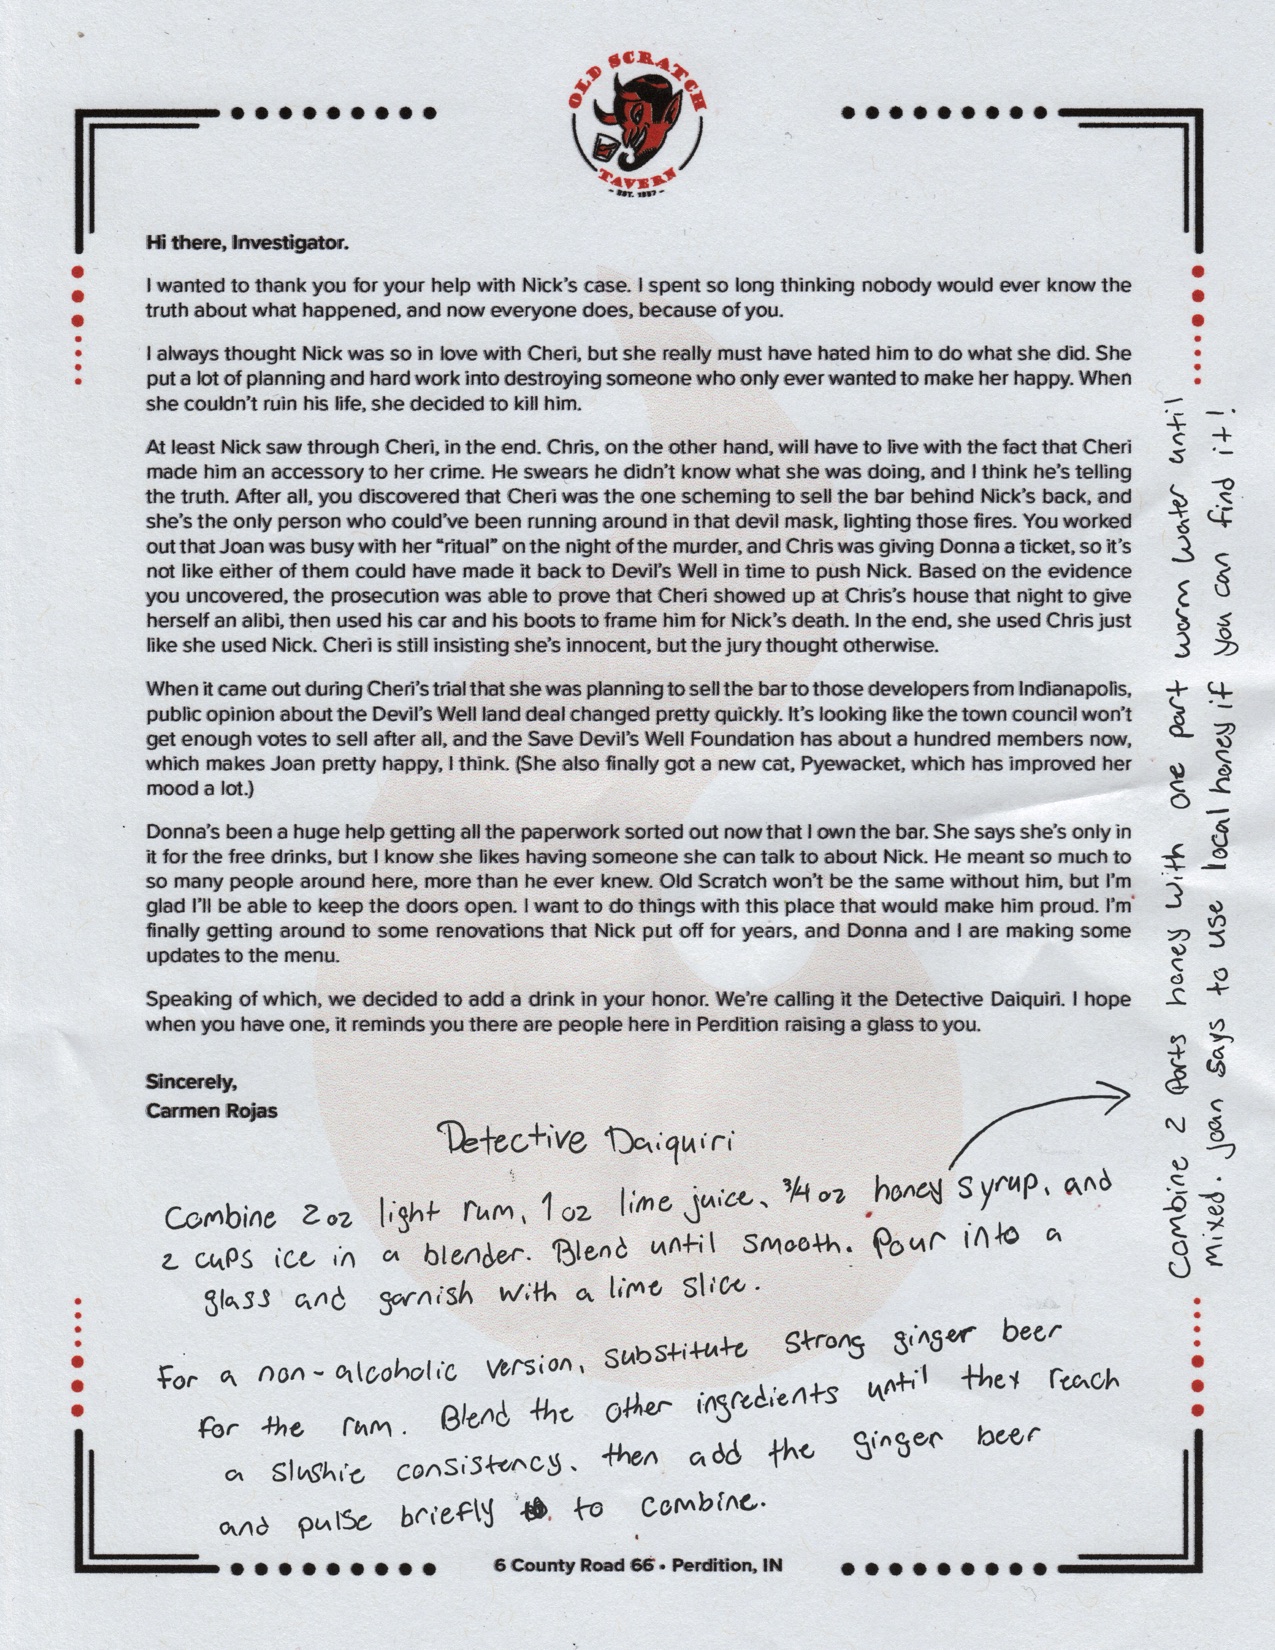 OLD SCRATCH
TAVERN
- EST. 1987 -
Hi there, Investigator.
I wanted to thank you for your help with Nick's case. I spent so long thinking nobody would ever know the
truth about what happened, and now everyone does, because of you.
I always thought Nick was so in love with Cheri, but she really must have hated him to do what she did. She
put a lot of planning and hard work into destroying someone who only ever wanted to make her happy. When
she couldn't ruin his life, she decided to kill him.
At least Nick saw through Cheri, in the end. Chris, on the other hand, will have to live with the fact that Cheri
made him an accessory to her crime. He swears he didn't know what she was doing, and I think he's telling
the truth. After all, you discovered that Cheri was the one scheming to sell the bar behind Nick's back, and
she's the only person who could've been running around in that devil mask, lighting those fires. You worked
out that Joan was busy with her “ritual” on the night of the murder, and Chris was giving Donna a ticket, so it's
not like either of them could have made it back to Devil's Well in time to push Nick. Based on the evidence
you uncovered, the prosecution was able to prove that Cheri showed up at Chris's house that night to give
herself an alibi, then used his car and his boots to frame him for Nick's death. In the end, she used Chris just
like she used Nick. Cheri is still insisting she's innocent, but the jury thought otherwise.
When it came out during Cheri's trial that she was planning to sell the bar to those developers from Indianapolis,
public opinion about the Devil's Well land deal changed pretty quickly. It's looking like the town council won't
get enough votes to sell after all, and the Save Devil's Well Foundation has about a hundred members now,
which makes Joan pretty happy, I think. (She also finally got a new cat, Pyewacket, which has improved her
mood a lot.)
Donna's been a huge help getting all the paperwork sorted out now that I own the bar. She says she's only in
it for the free drinks, but I know she likes having someone she can talk to about Nick. He meant so much to
so many people around here, more than he ever knew. Old Scratch won't be the same without him, but I'm
glad I'll be able to keep the doors open. I want to do things with this place that would make him proud. I'm
finally getting around to some renovations that Nick put off for years, and Donna and I are making some
updates to the menu.
Speaking of which, we decided to add a drink in your honor. We're calling it the Detective Daiquiri. I hope
when you have one, it reminds you there are people here in Perdition raising a glass to you.
Sincerely,
Carmen Rojas
Detective Daiquiri
Combine 2 oz light rum, 1 oz lime juice, 3/4 oz honey syrup, and
2 cups ice in a blender. Blend until smooth. Pour into a
glass and garnish with a lime slice.
For a non-alcoholic version, substitute strong ginger beer
for the rum. Blend the other ingredients until they reach
a slushie consistency, then add the ginger beer
and pulse briefly to combine.
Combine 2 parts honey with one part warm water until
mixed. Joan says to use local honey if you can find it!
6 County Road 66 • Perdition, IN